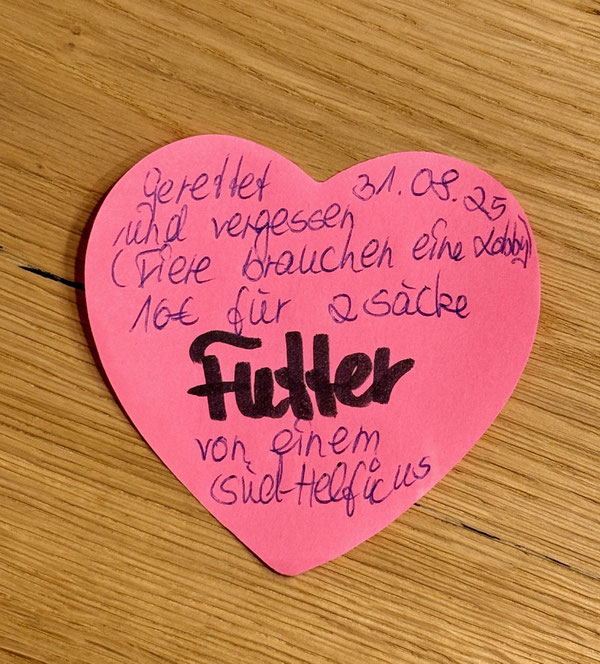 Gerettet 31.08.25
und vergessen
(Tiere brauchen eine Lobby)
16€ für 2 Säcke
Futter
von einem